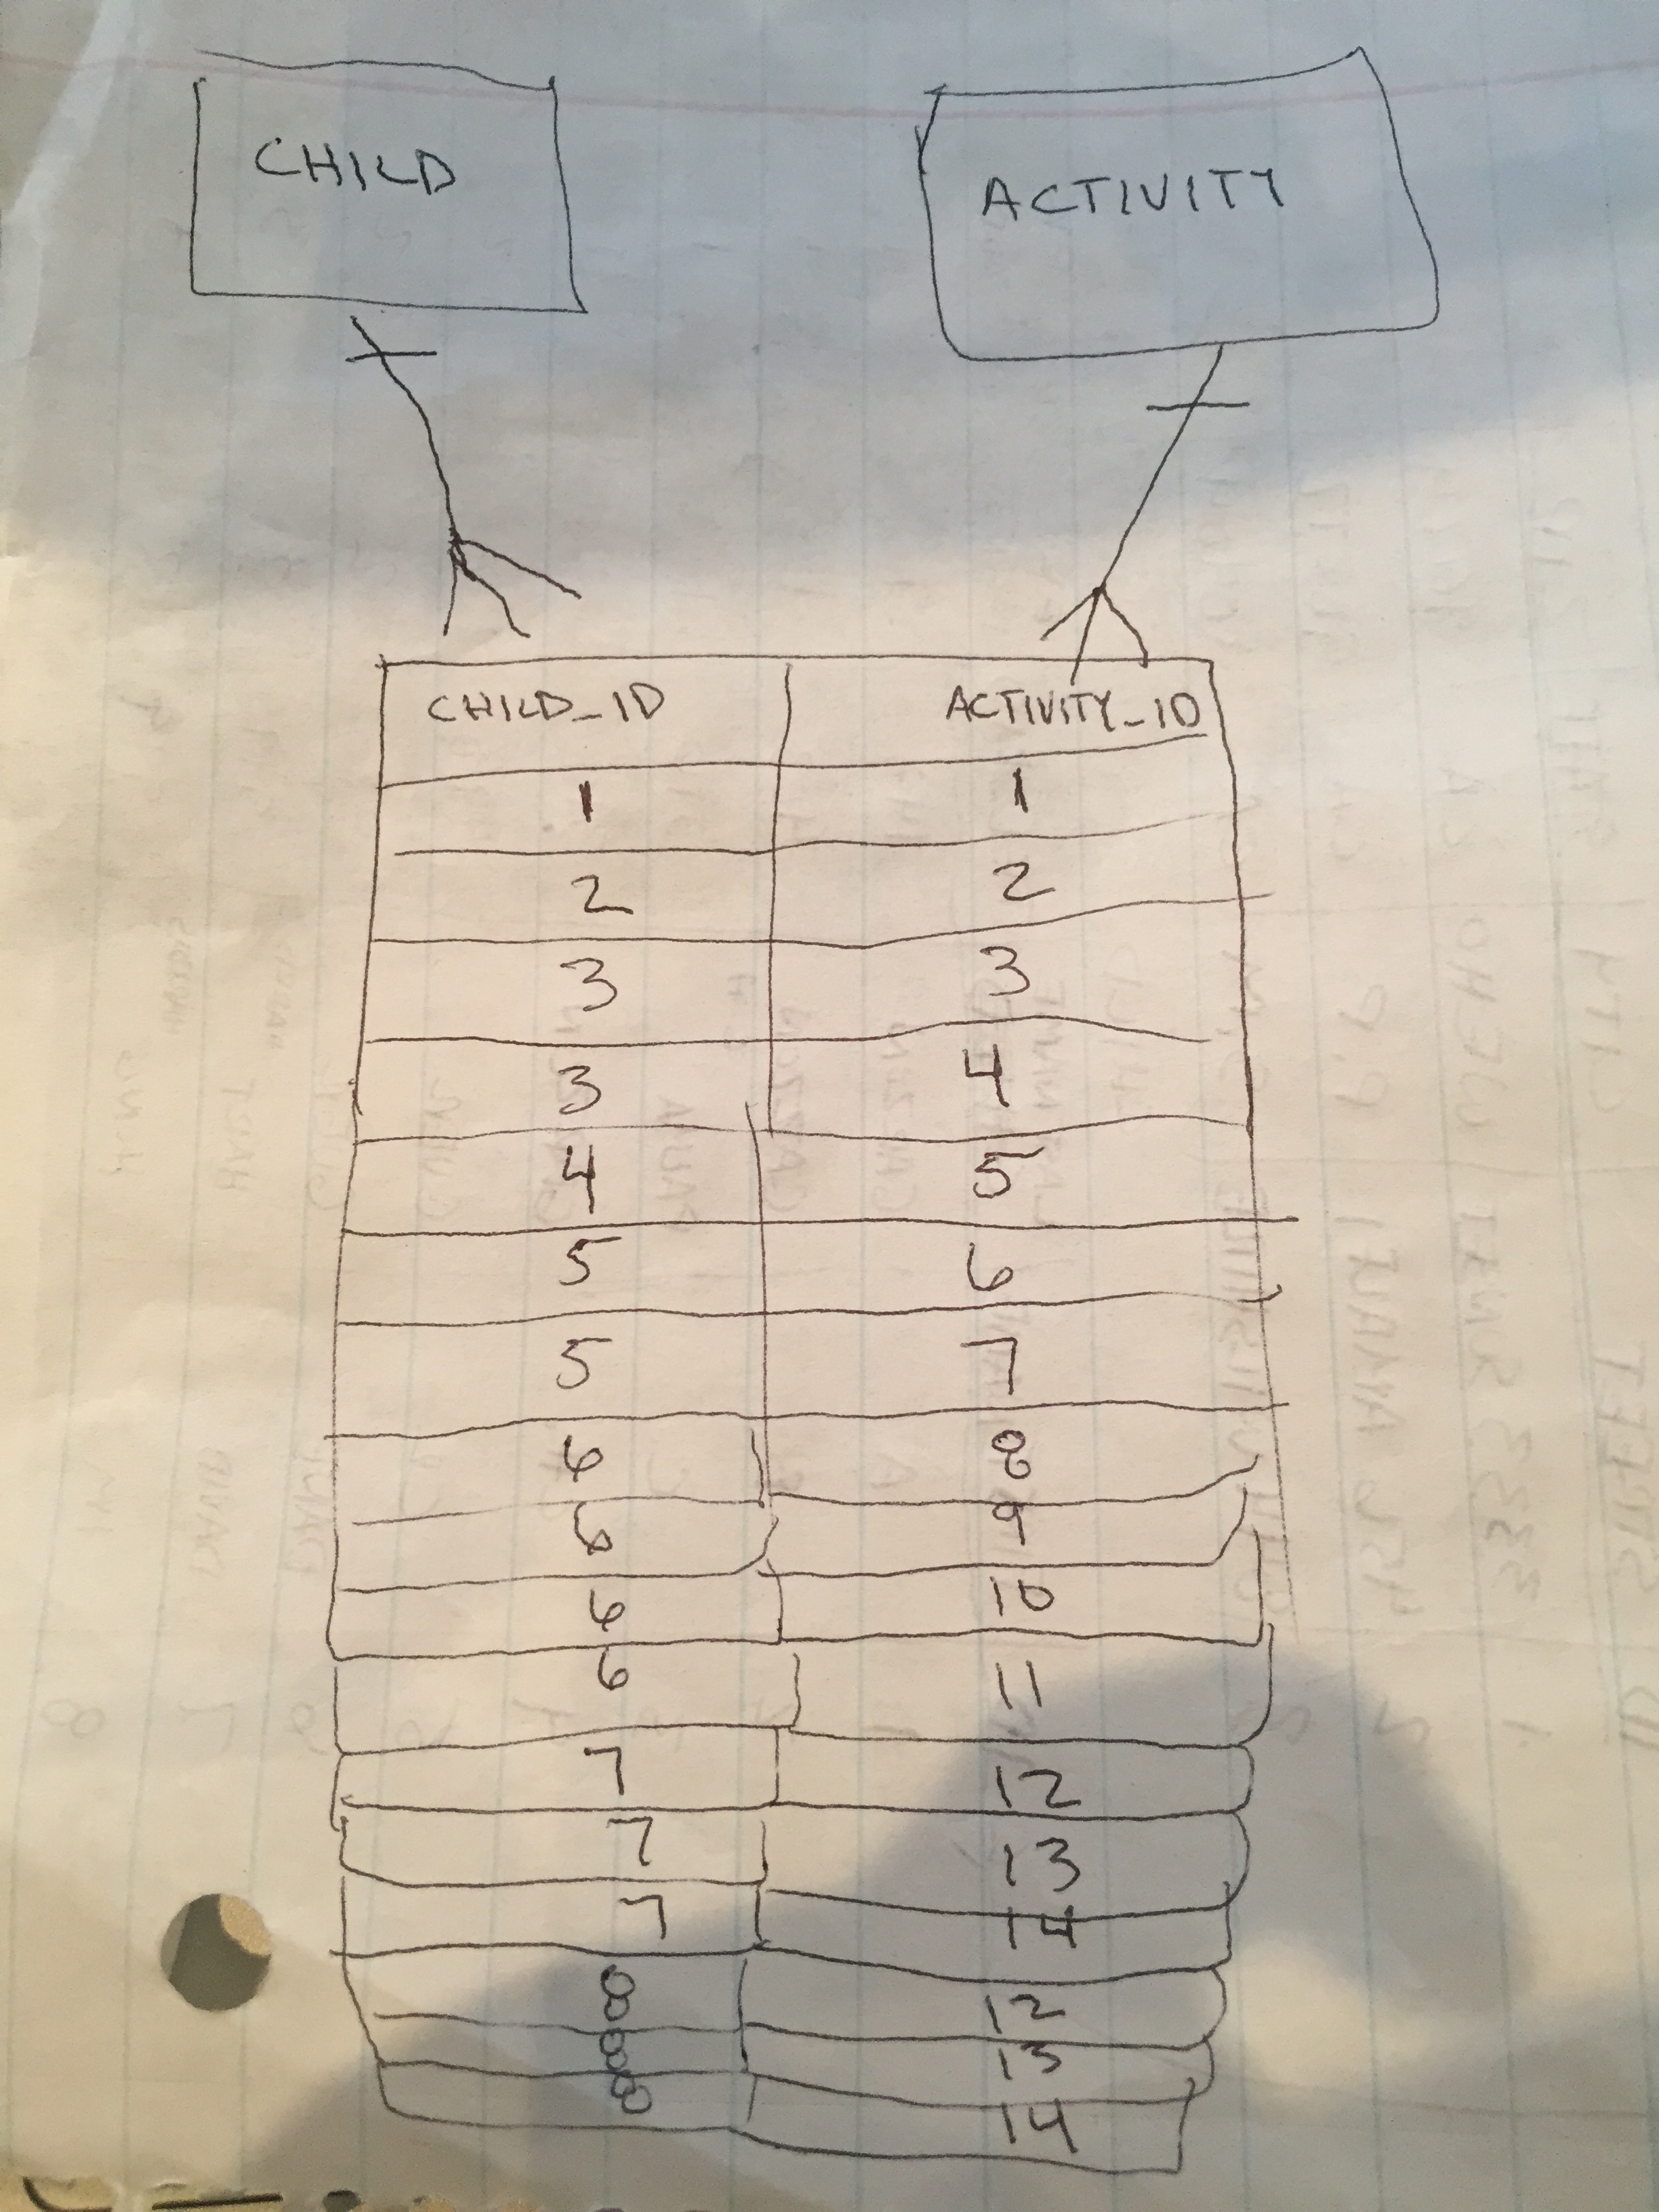 CHILD ACTIVITY
CHILD_ID ACTIVITY_ID
1 1
2 2
3 3
3 4
4 5
5 6
5 7
6 8
6 9
6 10
6 11
7 12
7 13
7 14
8 12
8 13
8 14